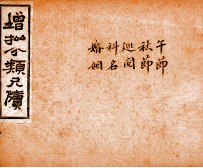 午節
秋節
巡閱
科名
婚姻
增批分類尺牘